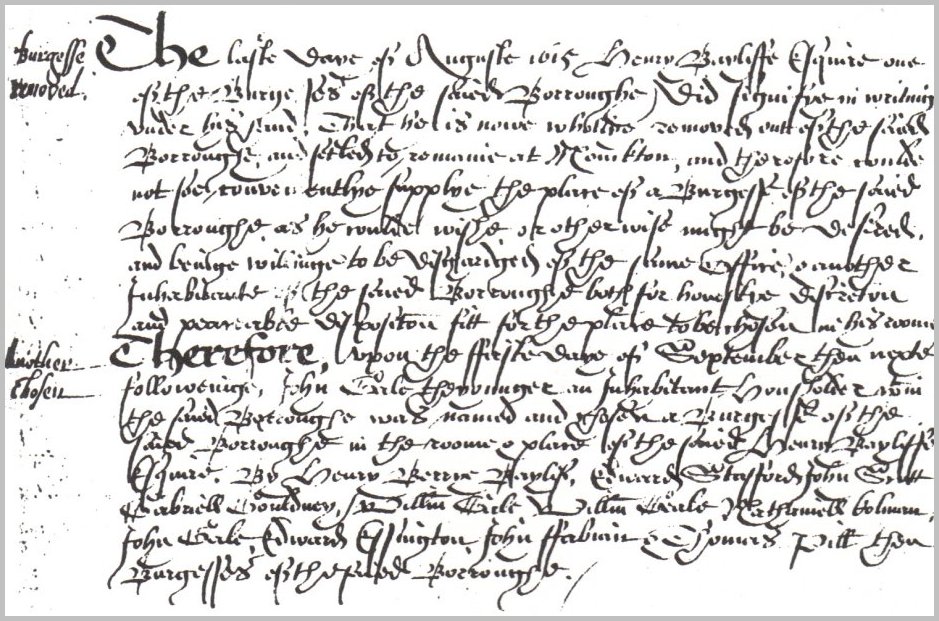 burgesse
removed.
The laste daye of Auguste 1615 Henry Bayliffe Esquire one
of the Burgesses of the saied Borroughe Did signifye in writing
under his hand, That he is nowe whollye removed out of the saied
Borroughe, and setled to remaine at Monckton, and therefore coulde
not soe convenientlye supplye the place of a Burgesse of the saied
Borroughe as he coulde wishe or otherwise might be desired,
and beinge willinge to be discharged of the same Office, & another
Inhabitante of the saied Borroughe both for honestye discretion
and peaceable disposition fitt for the place to be chosen in his roome
Another
Chosen
Therefore upon the firste daye of September then nexte
followeinge, John Cale the younger an Inhabitant Housholder wthin
the saied Borroughe was named and chosen a Burgesse of the
saied Borroughe in the roome & place of the saied Henry Bayliffe
Esquire. By Henry Berrye Baylif, Edward Stafford John Scott
Gabriell Gouldney, Willm Cale Willm Cale Nathaniell Colman,
John Cale, Edward Essington, John ffabian & Thomas Pill then
Burgesses of the saied Borroughe.